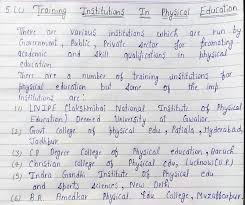 5.(c) Training Institutions In Physical Education
There are various institutions which are run by
Government, Public, Private sector for promoting
academic and skill qualifications in physical
education.
There are a number of training institutions for
physical education but some of the imp
Institutions are:
(1) LNIPE (Lakshmibai National Institute of Physical
Education) Deemed University at Gwalior.
(2) Govt College of physical edu, Patiala, Hyderabad,
Jodhpur
(3) C.P Degree College of Physical education,
(4) Christian College of Physical edu, Lucknow (U.P.)
(5) Indra Gandhi Institute of Physical edu
and Sports Sciences, New Delhi
(6) B.R. Amedkar Physical Edu College,